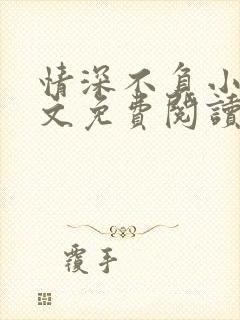 情深不负小
文免費閱讀
覆手